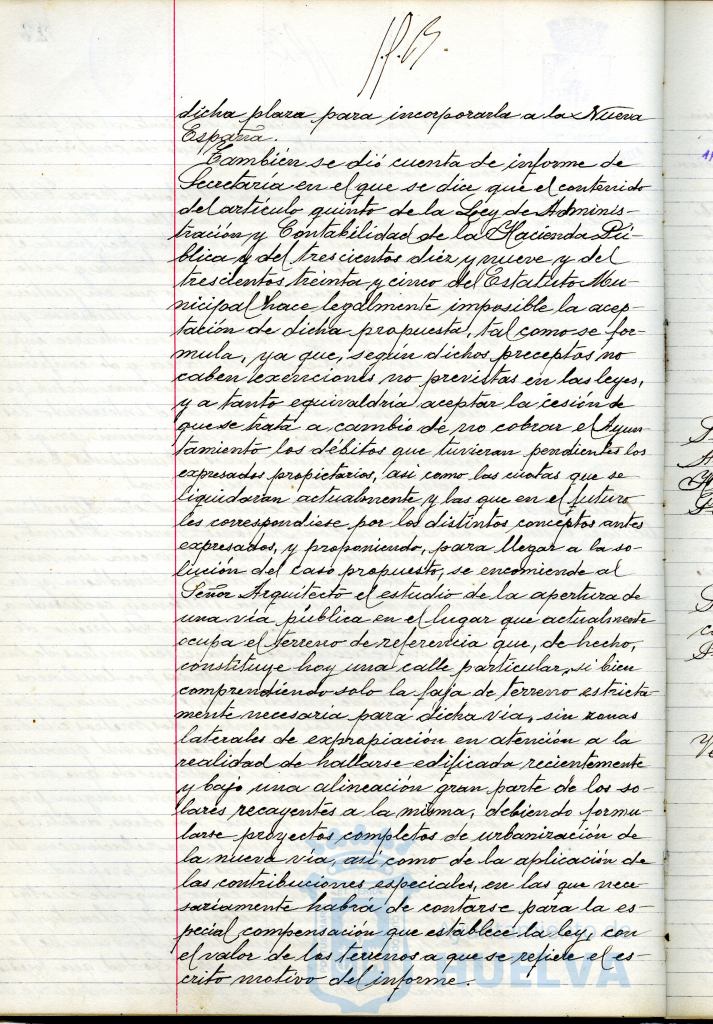 dicha plaza para incorporarla a la Nueva
España.
También se dió cuenta de informe de
Secretaría en el que se dice que el contenido
del artículo quinto de la Ley de Adminis-
tración y Contabilidad de la Hacienda Pú-
blica y del trescientos diez y nueve y del
trescientos treinta y cinco del Estatuto Mu-
nicipal hace legalmente imposible la acep-
tación de dicha propuesta, tal como se for-
mula, ya que, según dichos preceptos no
caben exenciones no previstas en las leyes,
y a tanto equivaldría aceptar la cesión de
que se trata a cambio de no cobrar el Ayun-
tamiento los débitos que tuvieran pendientes los
expresados propietarios, así como las cuotas que se
liquidaran actualmente y las que en el futuro
les correspondiese por los distintos conceptos antes
expresados, y proponiendo, para llegar a la so-
lución del caso propuesto, se encomiende al
Señor Arquitecto el estudio de la apertura de
una vía pública en el lugar que actualmente
ocupa el terreno de referencia que, de hecho,
constituye hoy una calle particular, si bien
comprendiendo solo la faja de terreno estricta-
mente necesaria para dicha vía, sin zonas
laterales de expropiación en atención a la
realidad de hallarse edificada recientemente
y bajo una alineación gran parte de los so-
lares recayentes a la misma, debiendo formu-
larse proyectos completos de urbanización de
la nueva vía, así como de la aplicación de
las contribuciones especiales, en las que nece-
sariamente habrá de contarse para la es-
pecial compensación que establece la ley, con
el valor de los terrenos a que se refiere el es-
crito motivo del informe.
HUELVA